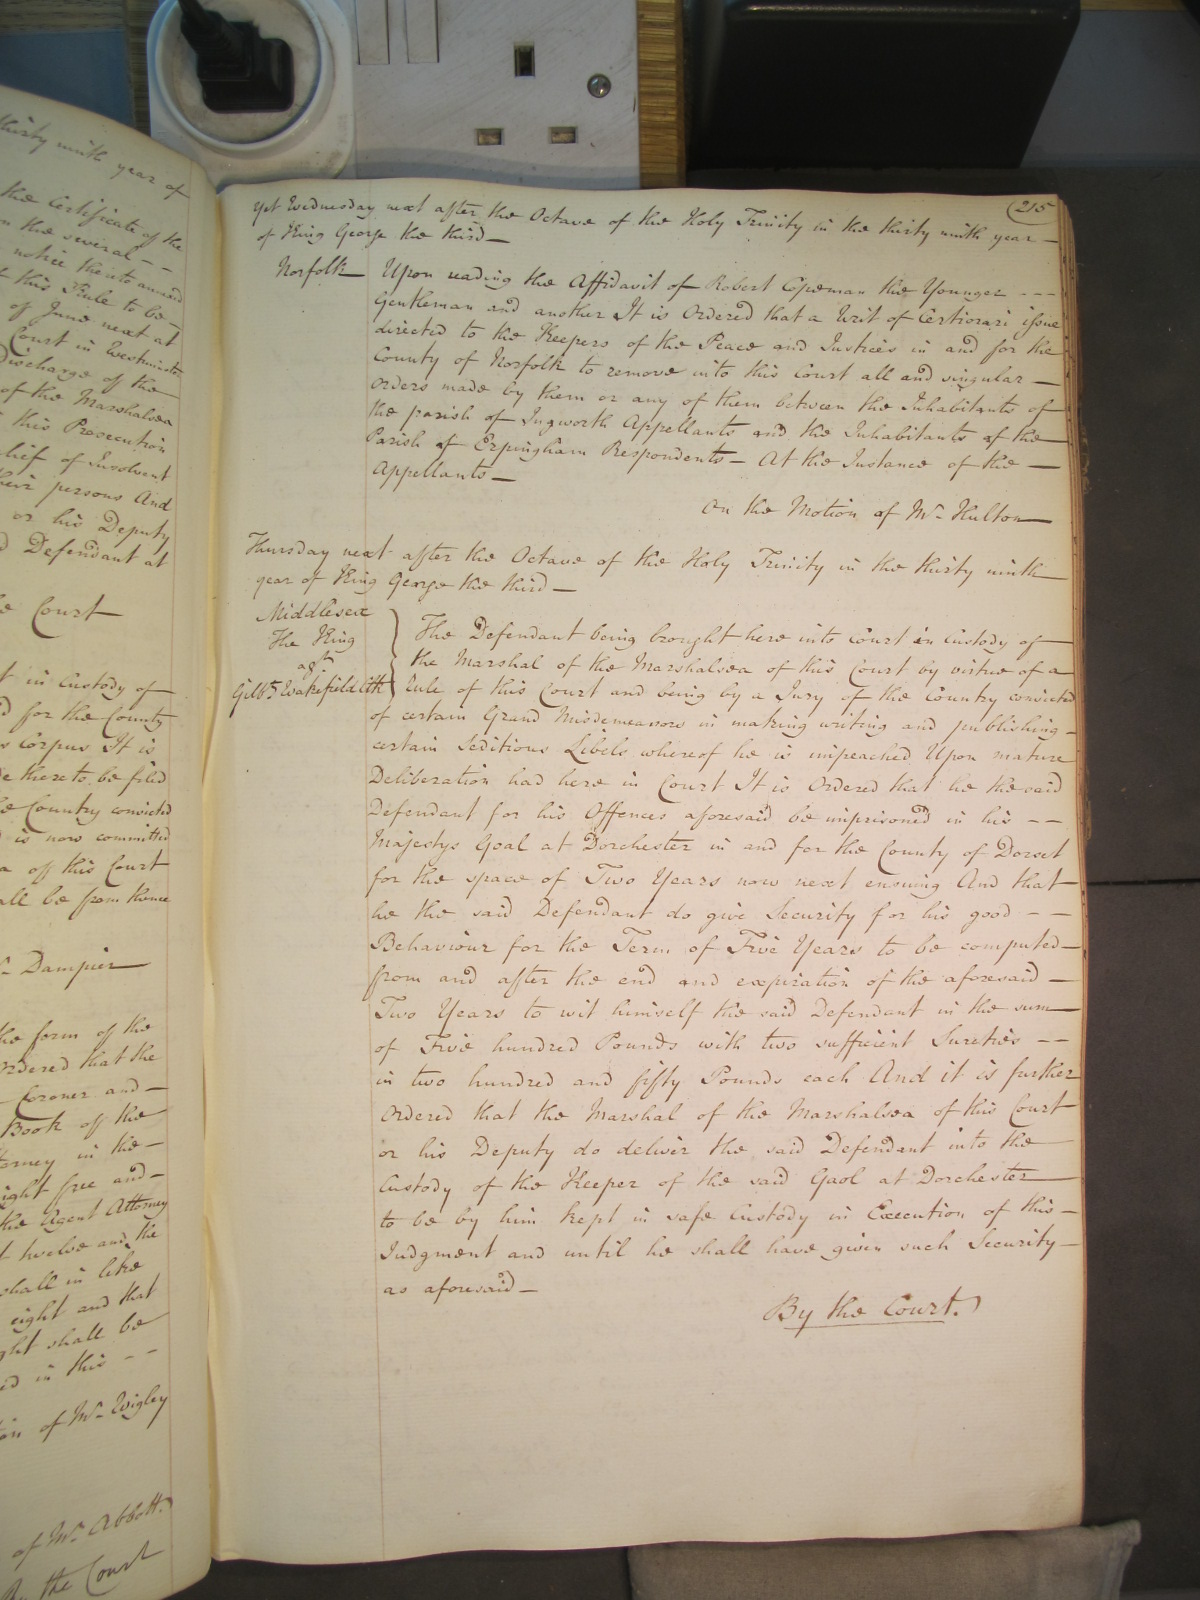 thirty ninth year of
the Certificate of the
in the several - -
notice thereto annexed
this Rule to be
of June next at
Court in Westminster
Discharge of the
of the Marshalsea
this Prosecution
Relief of Insolvent
their persons And
or his Deputy
Defendant at
the Court
in Custody of
for the County
Corpus It is
thereto be filed
the Country convicted
is now committed
of this Court
shall be from thence
Mr Dampier
the form of the
ordered that the
Coroner and
Book of the
Attorney in the
eight free and
the Agent Attorney
twelve and the
shall in like
eight and that
shall be
in this - -
of Mr Wigley
of Mr Abbott.
By the Court
215
Yet Wednesday next after the Octave of the Holy Trinity in the thirty ninth year —
of King George the third —
Norfolk Upon reading the Affidavit of Robert Copeman the Younger - - -
Gentleman and another It is Ordered that a Writ of Certiorari issue
directed to the Keepers of the Peace and Justices in and for the
County of Norfolk to remove into this Court all and singular —
orders made by them or any of them between the Inhabitants of
the parish of Ingworth Appellants and the Inhabitants of the
Parish of Erpingham Respondents — At the Instance of the —
Appellants —
On the Motion of Mr Hulton
Thursday next after the Octave of the Holy Trinity in the thirty ninth
year of King George the third —
Middlesex
The King
agt
Gilbt Wakefield Clk
The Defendant being brought here into Court in Custody of
the Marshal of the Marshalsea of this Court by virtue of a
Rule of this Court and being by a Jury of the Country convicted
of certain Grand Misdemeanors in making writing and publishing
certain Seditious Libels whereof he is impeached Upon mature
Deliberation had here in Court It is Ordered that he the said
Defendant for his Offences aforesaid be imprisoned in his - -
Majestys Goal at Dorchester in and for the County of Dorset
for the space of Two Years now next ensuing And that
he the said Defendant do give Security for his good - -
Behaviour for the Term of Five Years to be computed —
from and after the end and expiration of the aforesaid —
Two Years to wit himself the said Defendant in the sum
of Five hundred Pounds with two sufficient Sureties - -
in two hundred and fifty Pounds each And it is further
Ordered that the Marshal of the Marshalsea of this Court
or his Deputy do deliver the said Defendant into the
Custody of the Keeper of the said Gaol at Dorchester
to be by him kept in safe Custody in Execution of this —
Judgment and until he shall have given such Security —
as aforesaid —
By the Court.